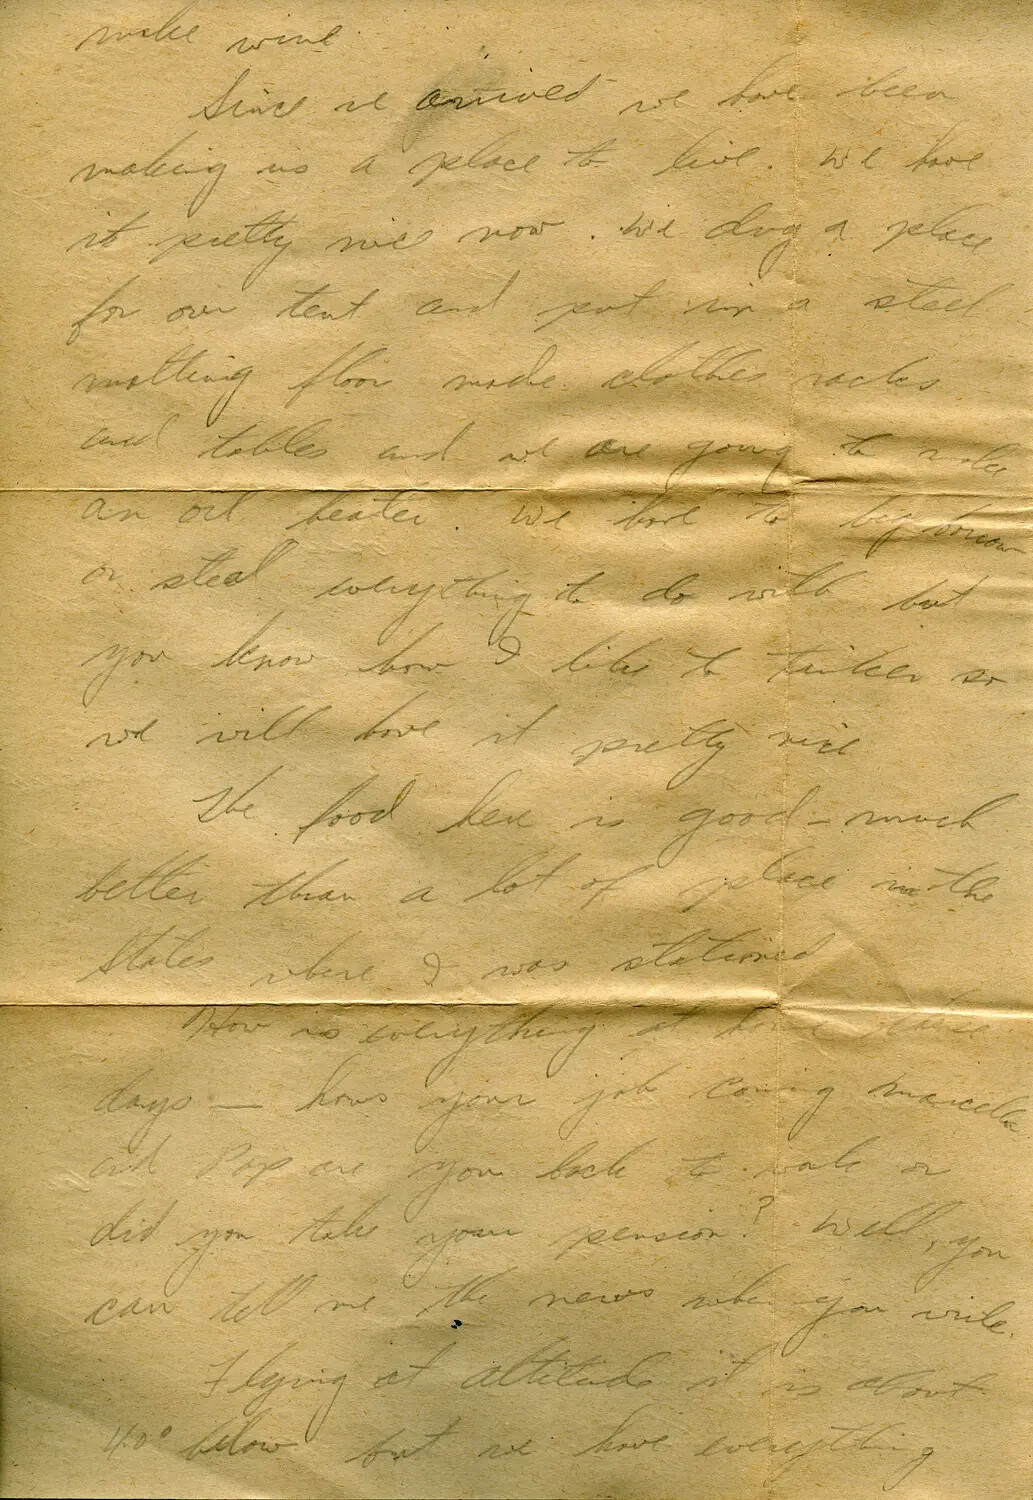 make wine
Since we arrived we have been
making us a place to live. We have
it pretty nice now. We dug a place
for our tent and put in a steel
matting floor made clothes racks
and tables and we are going to make
an oil heater. We have to beg borrow
or steal everything to do with but
you know how I like to tinker so
we will have it pretty nice
The food here is good - much
better than a lot of place in the
States where I was stationed
How is everything at home these
days — hows your job coming Marcella
and Pop are you back to work or
did you take your pension? Well, you
can tell me the news when you write.
Flying at altitude it is about
40° below but we have everything